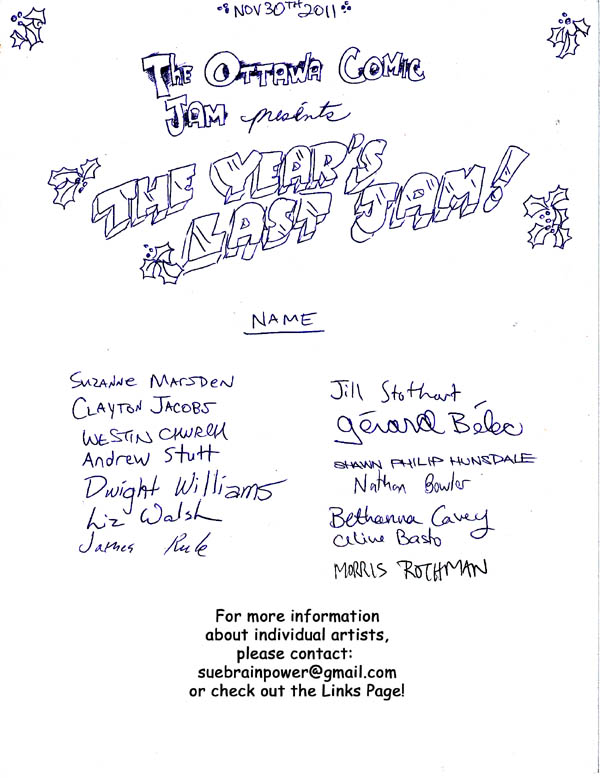 NOV 30TH 2011
THE OTTAWA COMIC
JAM presents
THE YEAR'S
LAST JAM!
NAME
SUZANNE MARSDEN
CLAYTON JACOBS
WESTIN CHURCH
Andrew Stutt
Dwight Williams
Liz Walsh
James Rule
Jill Stothart
Gérard Bélec
SHAWN PHILIP HUNSDALE
Nathan Bowler
Bethanna Cavey
Celine Basto
MORRIS ROTHMAN
For more information
about individual artists,
please contact:
suebrainpower@gmail.com
or check out the Links Page!